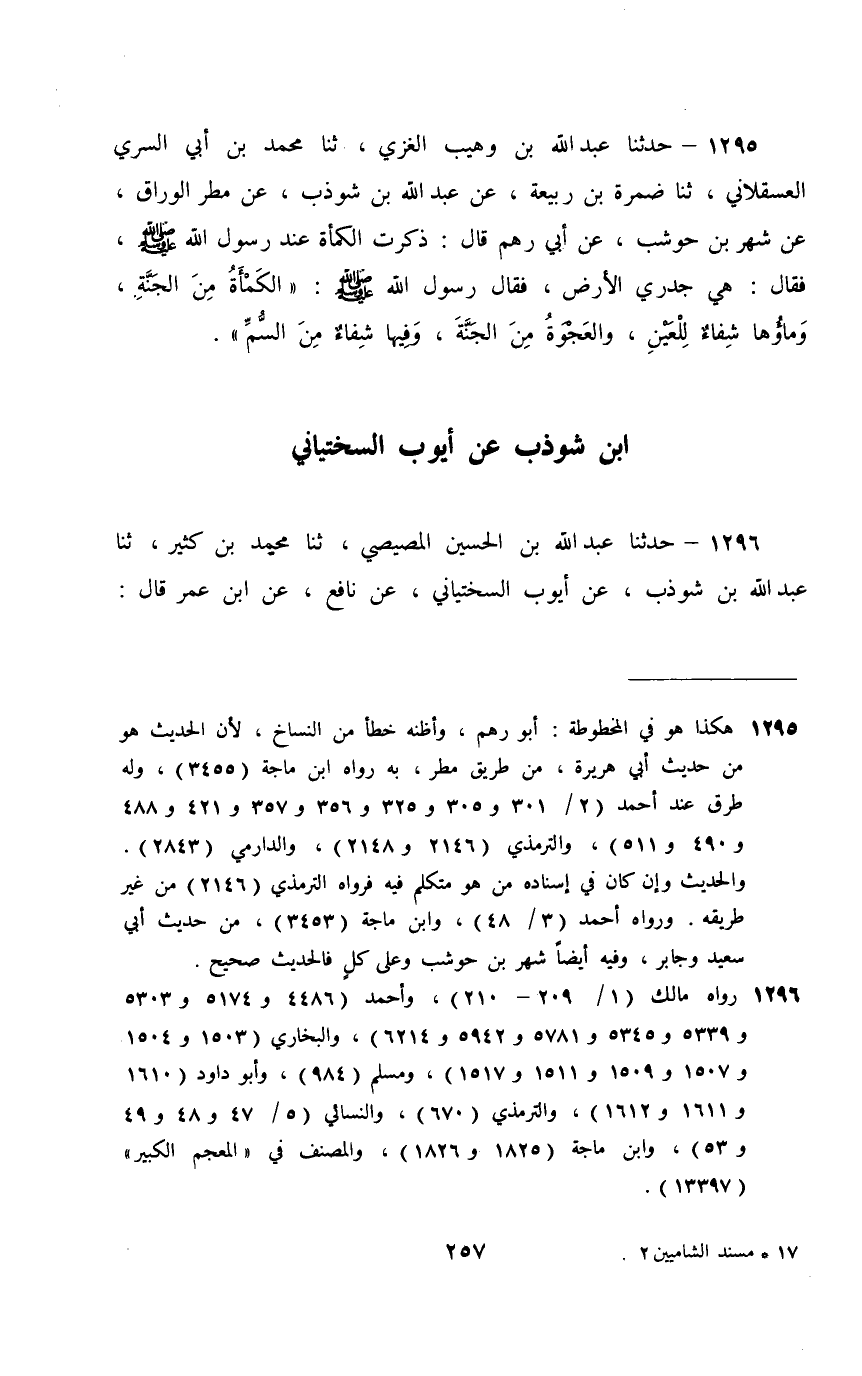 ١٢٩٥ – حدثنا عبد الله بن وهيب الغزي ، ثنا محمد بن أبي السري
العسقلاني ، ثنا ضمرة بن ربيعة ، عن عبد الله بن شوذب ، عن مطر الوراق ،
عن شهر بن حوشب ، عن أبي رهم قال : ذكرت الكمأة عند رسول الله ﷺ ،
فقال : هي جدري الأرض ، فقال رسول الله ﷺ : « الكَمْأَةُ مِنَ الجَنَّةِ ،
وَماؤُها شِفاءٌ لِلْعَيْنِ ، والعَجْوَةُ مِنَ الجَنَّةَ ، وَفِيها شِفاءٌ مِنَ السُّمِّ » .
ابن شوذب عن أيوب السختياني
١٢٩٦ – حدثنا عبد الله بن الحسين المصيصي ، ثنا محمد بن كثير ، ثنا
عبد الله بن شوذب ، عن أيوب السختياني ، عن نافع ، عن ابن عمر قال :
١٢٩٥ هكذا هو في المخطوطة : أبو رهم ، وأظنه خطأ من النساخ ، لأن الحديث هو
من حديث أبي هريرة ، من طريق مطر ، به رواه ابن ماجة (٣٤٥٥) ، وله
طرق عند أحمد (٢/ ٣٠١ و ٣٠٥ و ٣٢٥ و ٣٥٦ و ٣٥٧ و ٤٢١ و ٤٨٨
و ٤٩٠ و ٥١١) ، والترمذي (٢١٤٦ و ٢١٤٨) ، والدارمي (٢٨٤٣) .
والحديث وإن كان في إسناده من هو متكلم فيه فرواه الترمذي (٢١٤٦) من غير
طريقه . ورواه أحمد (٣/ ٤٨) ، وابن ماجة (٣٤٥٣) ، من حديث أبي
سعيد وجابر ، وفيه أيضاً شهر بن حوشب وعلى كلٍ فالحديث صحيح .
١٢٩٦ رواه مالك (١/ ٢٠٩ – ٢١٠) ، وأحمد (٤٤٨٦ و ٥١٧٤ و ٥٣٠٣
و ٥٣٣٩ و ٥٣٤٥ و ٥٧٨١ و ٥٩٤٢ و ٦٢١٤) ، والبخاري (١٥٠٣ و ١٥٠٤
و ١٥٠٧ و ١٥٠٩ و ١٥١١ و ١٥١٧) ، ومسلم (٩٨٤) ، وأبو داود (١٦١٠
و ١٦١١ و ١٦١٢) ، والترمذي (٦٧٠) ، والنسائي (٥/ ٤٧ و ٤٨ و ٤٩
و ٥٣) ، وابن ماجة (١٨٢٥ و ١٨٢٦) ، والمصنف في « المعجم الكبير »
(١٣٣٩٧) .
١٧ * مسند الشاميين ٢ . ٢٥٧